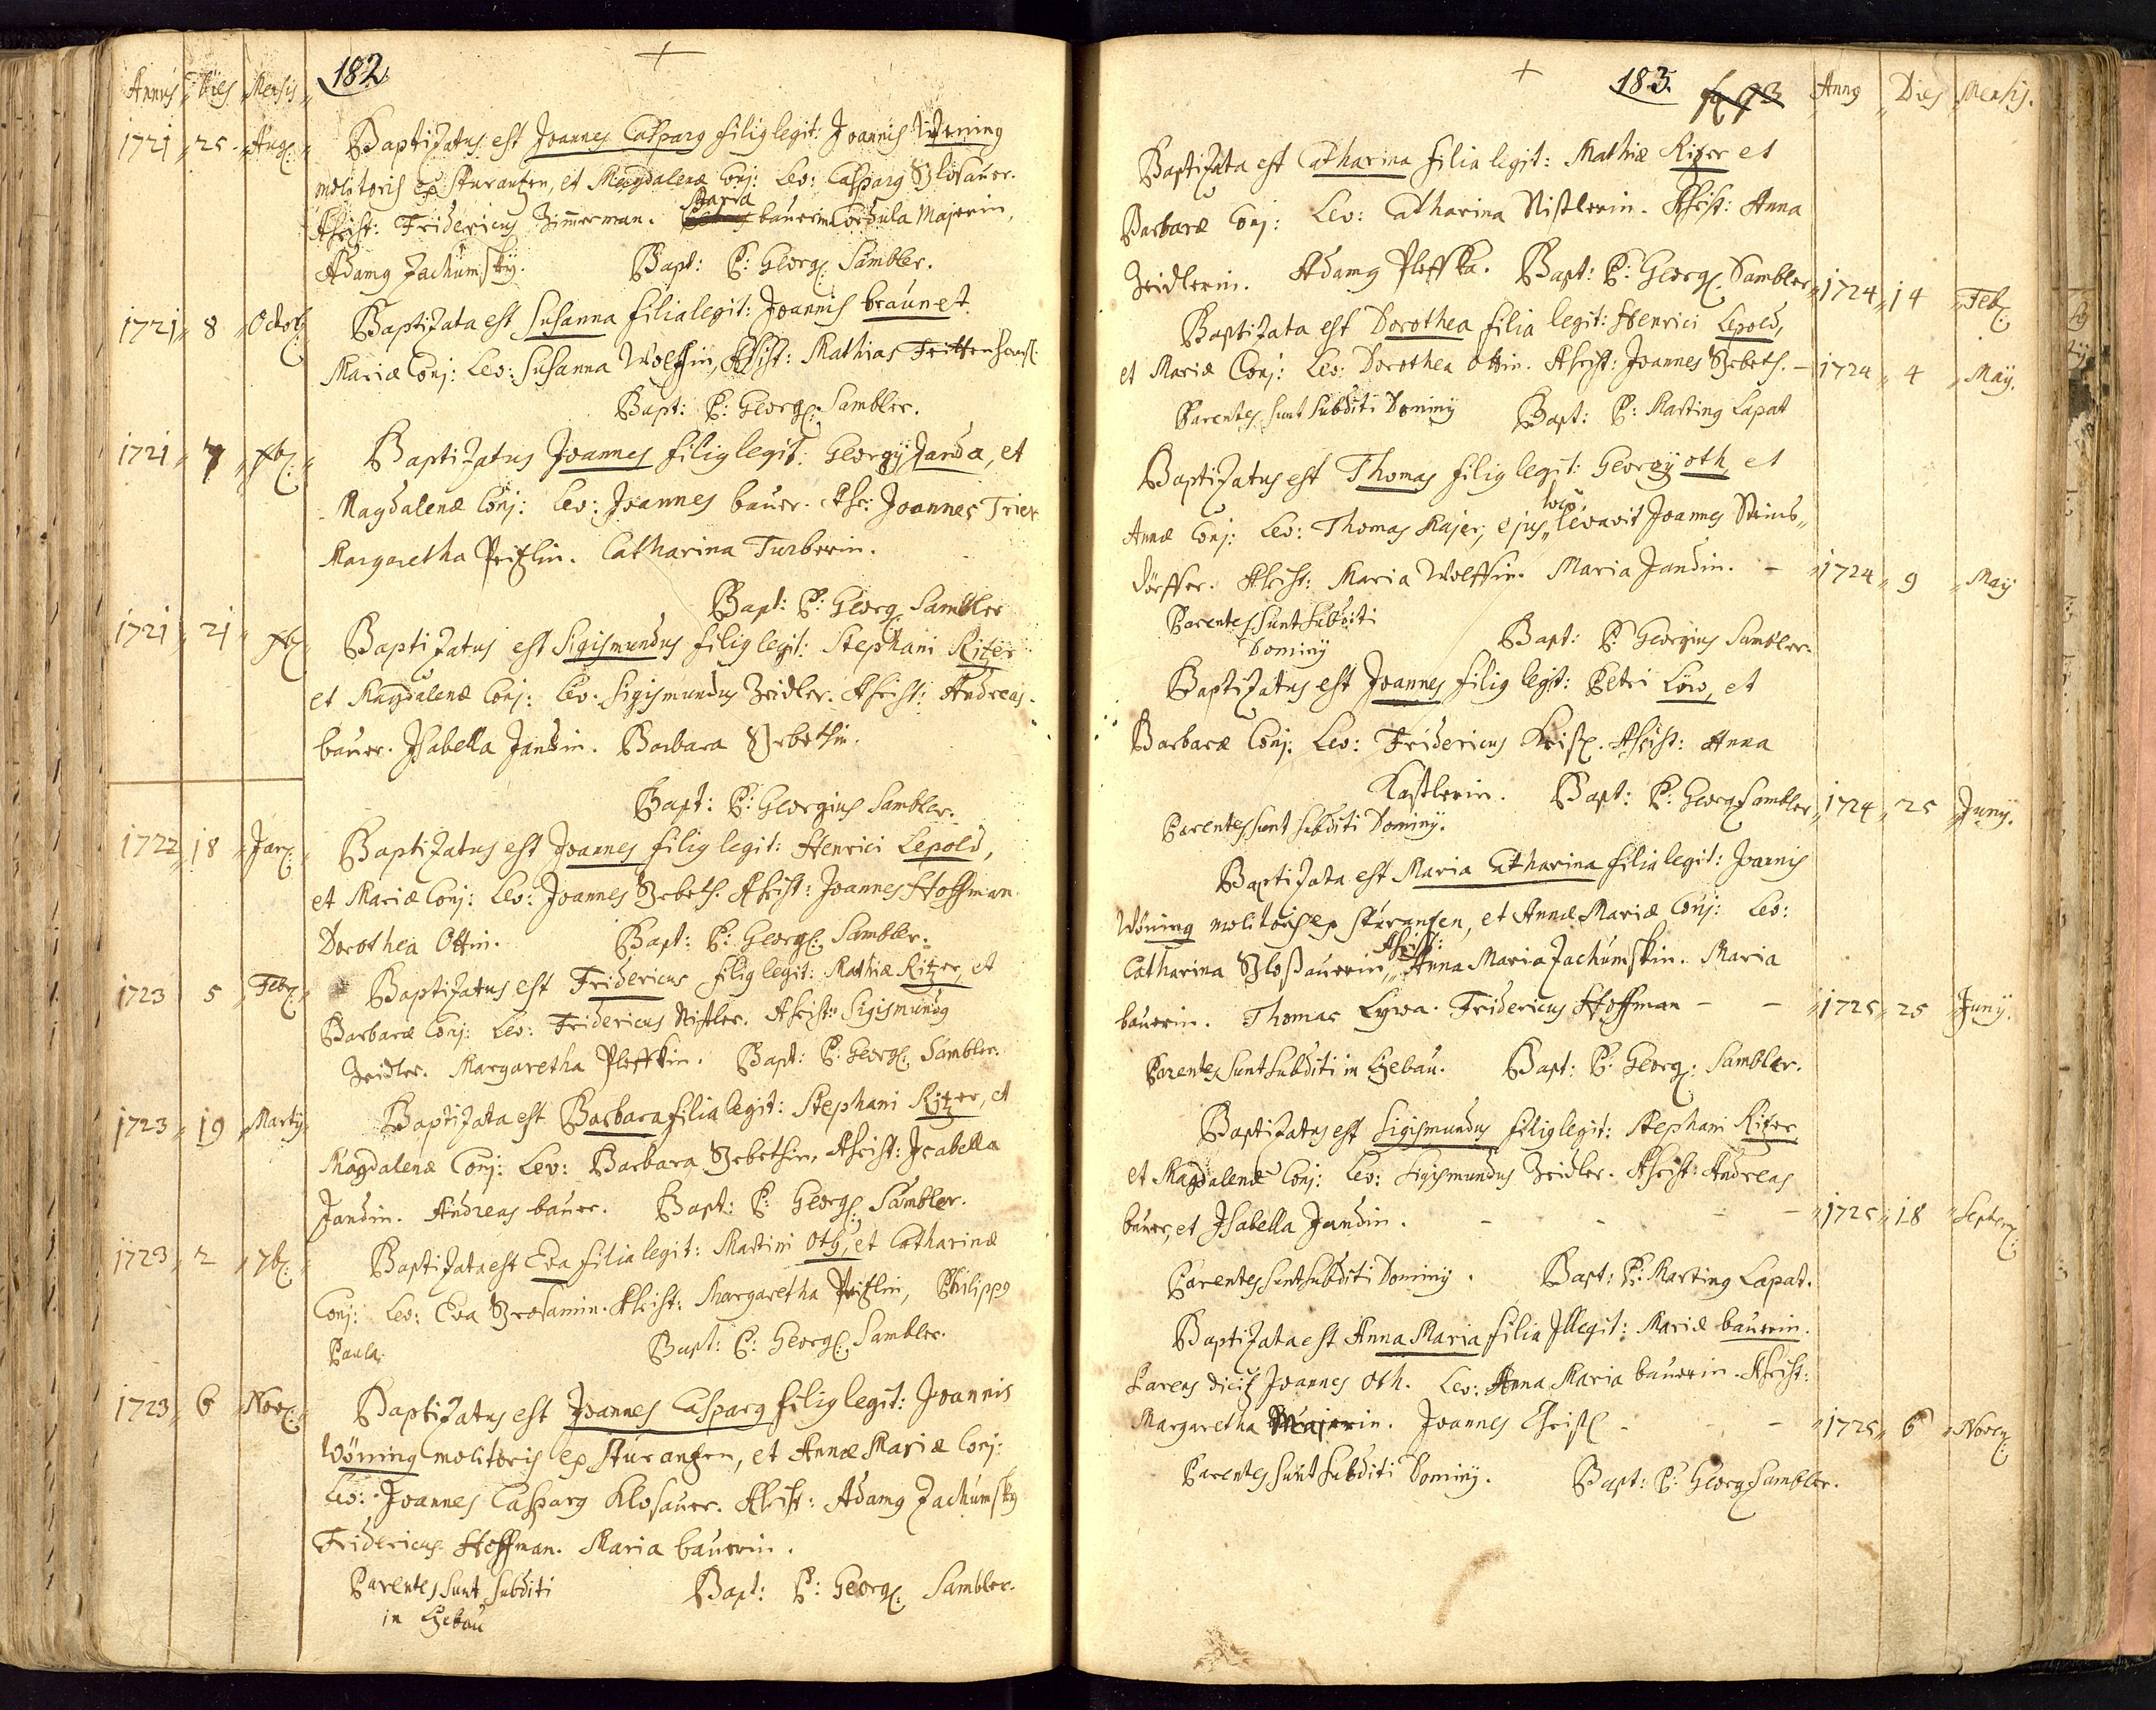 Annus Dies Mensis 182
1721 25 Aug: Baptizatus est Joannes Casparg filig legit: Joannis Wening
molitoris ex sturanzen, et Magdalenæ Conj: Lev: Casparg Glosauer.
Assist: Fridericus Zimmerman. Maria bauerin Orsula Majerin,
Adamg Zachumsky. Bapt: P: Georg: Sambler.
1721 8 Octob: Baptizata est Susanna filia legit: Joannis braun et
Mariæ Conj: Lev: Susanna Wolffin, Assist: Mathias
Bapt: P: Georg: Sambler.
1721 7 xb: Baptizatus Joannes filig legit: Georgij Janda, et
Magdalenæ Conj: Lev: Joannes bauer. Ass: Joannes Trier
Margaretha Peitzlin. Catharina Turberin.
Bapt: P: Georg: Sambler
1721 21 xb: Baptizatus est Sigismundus filig legit: Stephani Ritzer
et Magdalenæ Conj: Lev: Sigismundus Zeidler. Assist: Andreas
bauer. Isabella Jandin. Barbara Sebethin.
Bapt: P: Georgius Sambler.
1722 18 Jan: Baptizatus est Joannes filig legit: Henrici Lepold,
et Mariæ Conj: Lev: Joannes Sebeth. Assist: Joannes Hoffman
Dorothea Ottin. Bapt: P: Georg: Sambler.
1723 5 Feb: Baptizatus est Fridericus filig legit: Mathiæ Ritzer, et
Barbaræ Conj: Lev: Fridericus Nistler. Assist: Sigismundg
Zeidler. Margaretha Pleffkin. Bapt: P: Georg: Sambler.
1723 19 Martij Baptizata est Barbara filia legit: Stephani Ritzer, et
Magdalenæ Conj: Lev: Barbara Sebethin, Assist: Isabella
Jandin. Andreas bauer. Bapt: P: Georg: Sambler.
1723 2 7b: Baptizata est Eva filia legit: Martini Oth, et Catharinæ
Conj: Lev: Eva Assist: Margaretha Peitzlin, Philippg
Paula. Bapt: P: Georg: Sambler.
1723 6 Nov: Baptizatus est Joannes Casparg filig legit: Joannis
Wöning molitoris ex sturanzen, et Annæ Mariæ Conj:
Lev: Joannes Casparg Klosauer. Assist: Adamg Zachumsky
Fridericus Hoffman. Maria bauerin.
Parentes sunt subditi Bapt: P: Georg: Sambler.
in Chebau
183. Anng Dies Mensis.
Baptizata est Catharina filia legit: Mathiæ Ritzer et
Barbaræ Conj: Lev: Catharina Nistlerin. Assist: Anna
Zeidlerin. Adamg Pleffka. Bapt: P: Georg: Sambler 1724 14 Feb:
Baptizata est Dorothea filia legit: Henrici Lepold,
et Mariæ Conj: Lev: Dorothea Ottin. Assist: Joannes Sebeth. - 1724 4 Maij.
Parentes sunt subditi Dominij Bapt: P: Marting Lapat
Baptizatus est Thomas filig legit: Georgij oth, et
Annæ Conj: Lev: Thomas Majer, ejus loco levavit Joannes Steins
dörffer. Assist: Maria Wolffin. Maria Jandin. - 1724 9 Maij
Parentes sunt subditi
Dominij Bapt: P: Georgius Sambler.
Baptizatus est Joannes filig legit: Petri Löw, et
Barbaræ Conj: Lev: Fridericus Assist: Anna
Kastlerin. Bapt: P: Georg: Sambler 1724 25 Junij.
Parentes sunt subditi Dominij.
Baptizata est Maria Catharina filia legit: Joannis
Wöning molitoris ex sturanzen, et Annæ Mariæ Conj: Lev:
Catharina Gloßauerin, Assist: Anna Maria Zachumskin. Maria
bauerin. Thomas Lywa. Fridericus Hoffman - - 1725 25 Junij.
Parentes sunt subditi in Chebau. Bapt: P: Georg: Sambler.
Baptizatus est Sigismundus filig legit: Stephani Ritzer
et Magdalenæ Conj: Lev: Sigismundus Zeidler. Assist: Andreas
bauer, et Isabella Jandin. - - - - 1725 18 Septem:
Parentes sunt subditi Dominij. Bapt: P: Marting Lapat.
Baptizata est Anna Maria filia Illegit: Mariæ bauerin.
Parens dicit Joannes Oth. Lev: Anna Maria bauerin. Assist:
Margaretha Majerin. Joannes Christ - - 1725 6 Novem:
Parentes sunt subditi Dominij. Bapt: P: Georg Sambler.